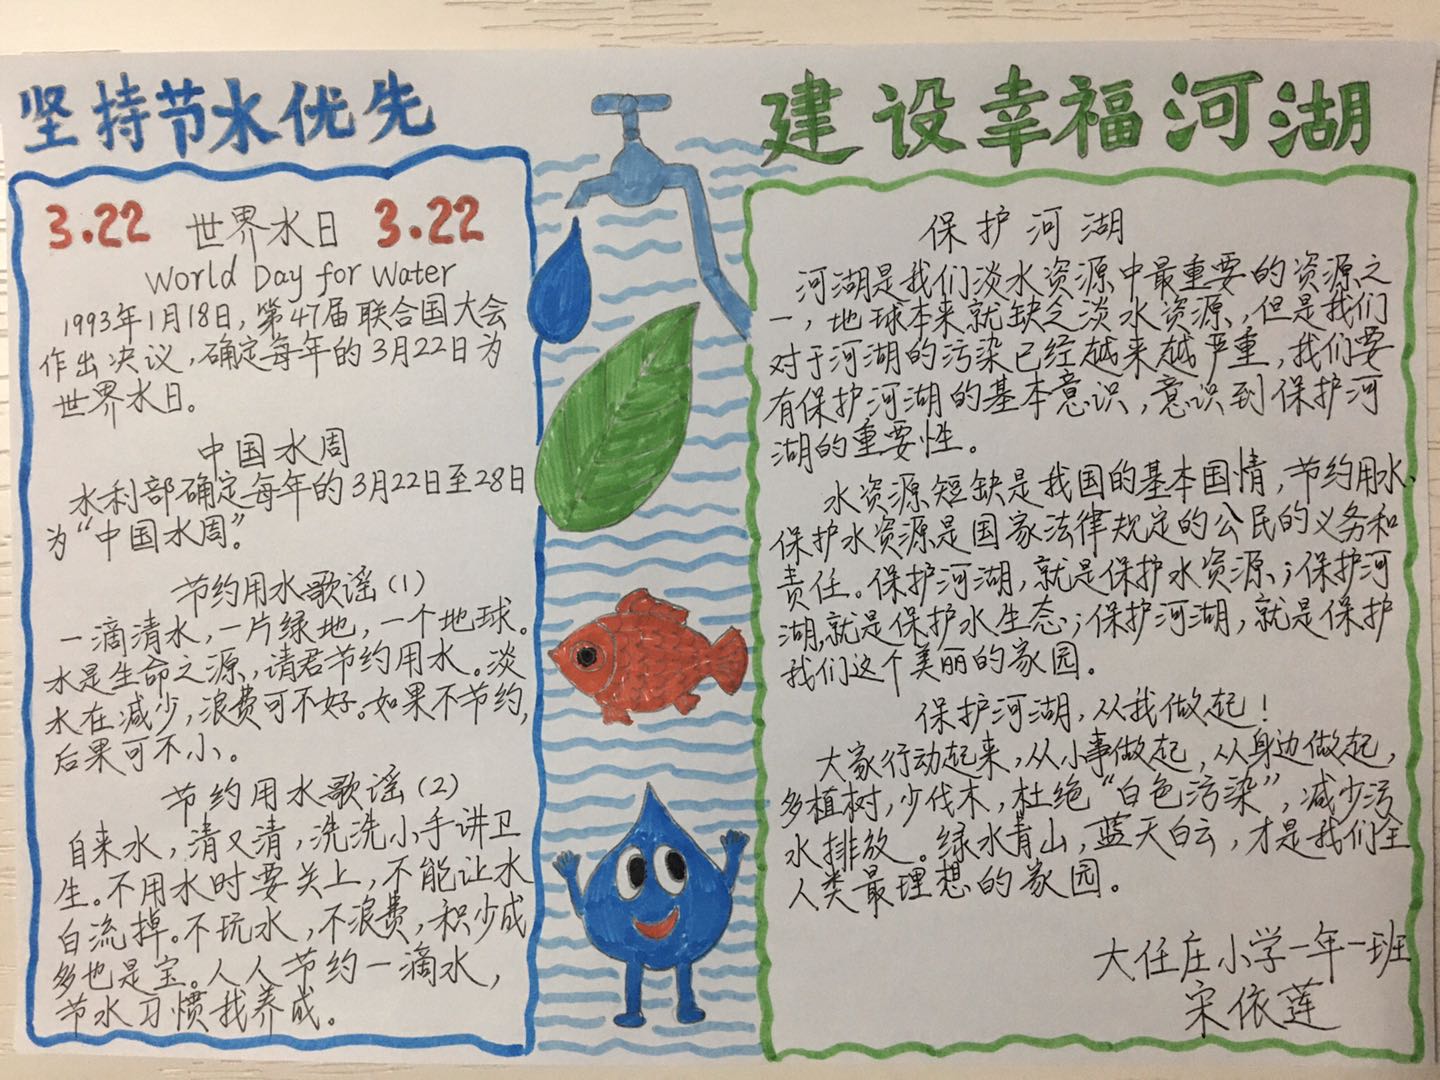 坚持节水优先
3.22 世界水日 3.22
World Day for Water
1993年1月18日,第47届联合国大会
作出决议,确定每年的3月22日为
世界水日。
中国水周
水利部确定每年的3月22日至28日
为“中国水周”。
节约用水歌谣(1)
一滴清水,一片绿地,一个地球。
水是生命之源,请君节约用水。淡
水在减少,浪费可不好。如果不节约,
后果可不小。
节约用水歌谣(2)
自来水,清又清,洗洗小手讲卫
生。不用水时要关上,不能让水
白流掉。不玩水,不浪费,积少成
多也是宝。人人节约一滴水,
节水习惯我养成。
建设幸福河湖
保护河湖
河湖是我们淡水资源中最重要的资源之
一,地球本来就缺乏淡水资源,但是我们
对于河湖的污染已经越来越严重,我们要
有保护河湖的基本意识,意识到保护河
湖的重要性。
水资源短缺是我国的基本国情,节约用水、
保护水资源是国家法律规定的公民的义务和
责任。保护河湖,就是保护水资源;保护河
湖,就是保护水生态;保护河湖,就是保护
我们这个美丽的家园。
保护河湖,从我做起!
大家行动起来,从小事做起,从身边做起,
多植树,少伐木,杜绝“白色污染”,减少污
水排放。绿水青山,蓝天白云,才是我们全
人类最理想的家园。
大任庄小学一年一班
宋依莲